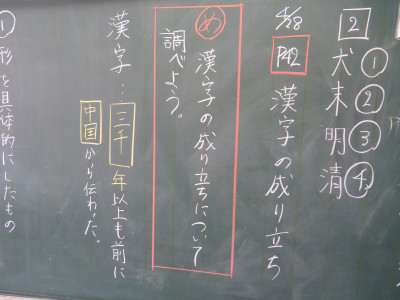 2
①②③④
犬末明清
4/28
P42 漢字の成り立ち
め 漢字の成り立ちについて
調べよう。
漢字…三千年以上も前に
中国から伝わった。
①形を具体的にしたもの